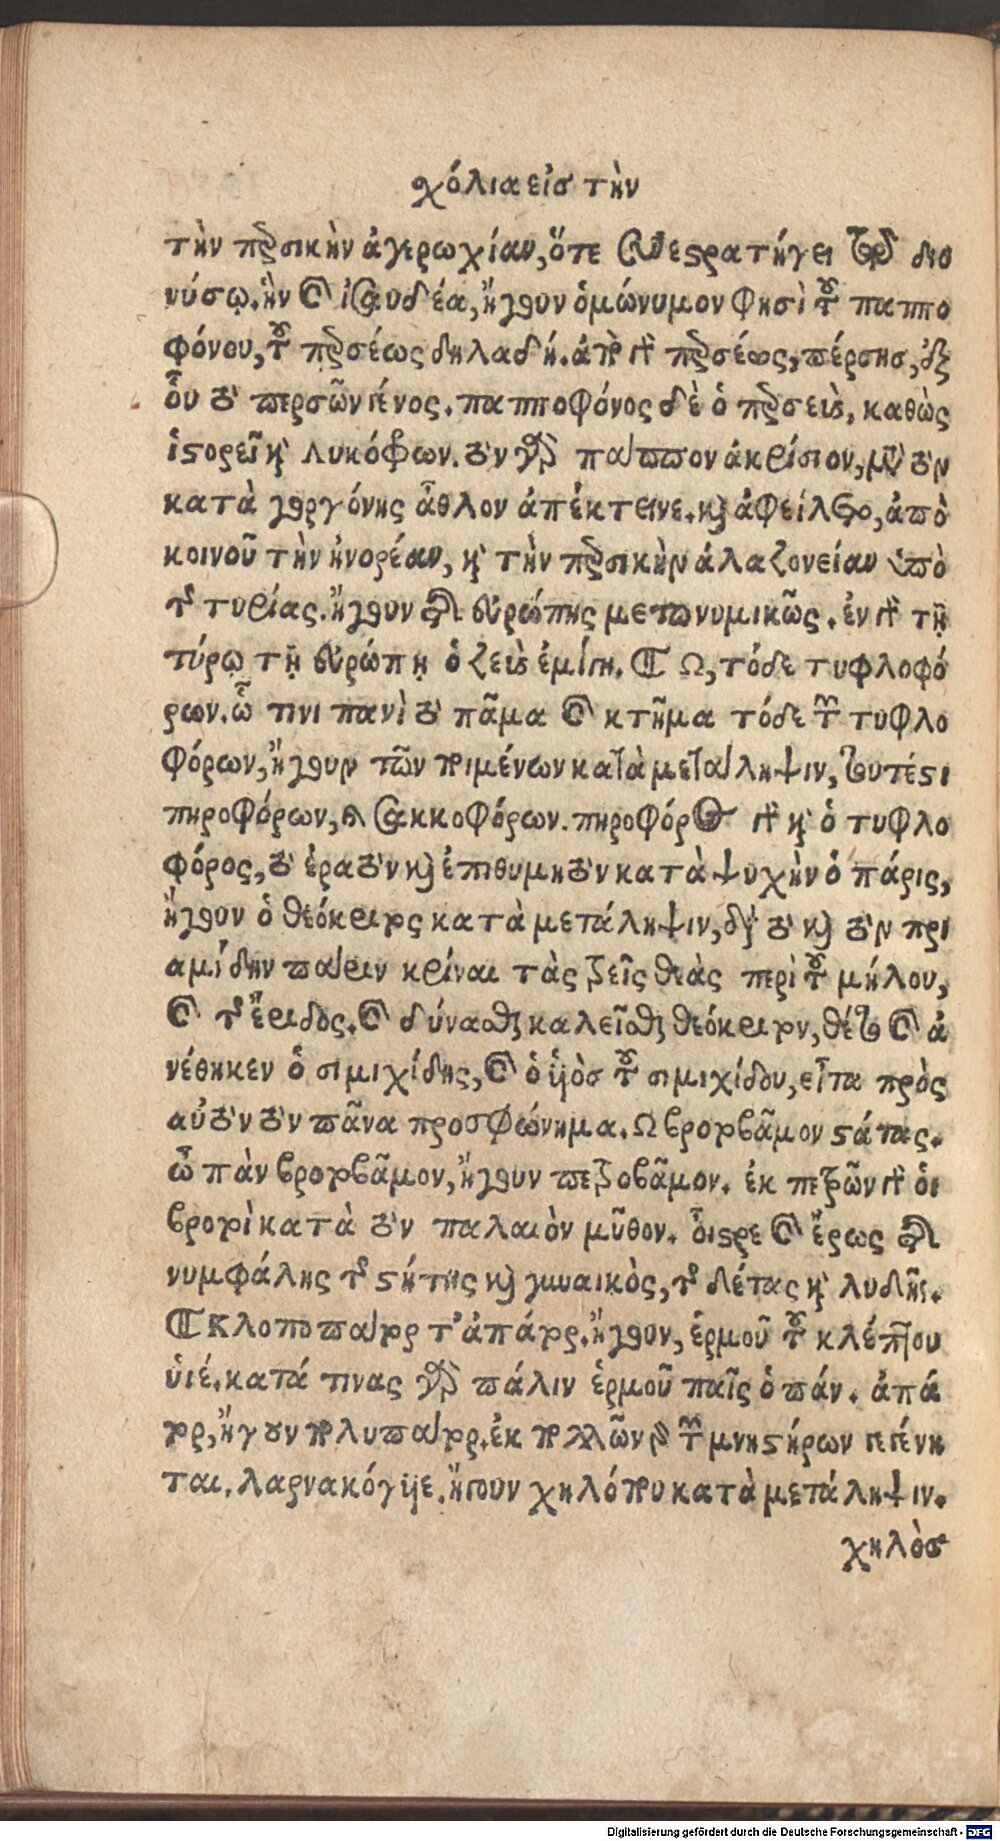 χόλια εἰσ τὴν
τὴν περσικὴν ἀγερωχίαν, ὅτε συνεστρατήγει τῷ διο
νύσῳ. ἢν καὶ ἰσαυδέα, ἤγουν ὁμώνυμον φησὶ τοῦ παππο
φόνου, τοῦ περσέως δηλαδή. ἀπὸ γὰρ περσέως, πέρσης, ἐξ
οὗ τὸ περσῶν γένος. παπποφόνος δὲ ὁ περσεὺς, καθὼς
ἱστορεῖ καὶ λυκόφρων. τὸν γὰρ πάππον ἀκρίσιον, μετὰ τὸν
κατὰ γοργόνης ἆθλον ἀπέκτεινε. καὶ ἀφείλετο, ἀπὸ
κοινοῦ τὴν ἠνορέαν, καὶ τὴν περσικὴν ἀλαζονείαν ἀπὸ
τῆς τυρίας. ἤγουν τῆς εὐρώπης μετωνυμικῶς. ἐν γὰρ τῇ
τύρῳ τῇ εὐρώπῃ ὁ ζεὺς ἐμίγη. ¶ Ω, τόδε τυφλοφό
ρων. ᾧ τινι πανὶ τὸ πᾶμα καὶ κτῆμα τόδε τῶν τυφλο
φόρων, ἤγουν τῶν κειμένων κατὰ μετάληψιν, τουτέστι
πηροφόρων, καὶ σακκοφόρων. πηροφόρος γὰρ καὶ ὁ τυφλο
φόρος, τὸ ἐρατὸν καὶ ἐπιθυμητὸν κατὰ ψυχὴν ὁ πάρις,
ἤγουν ὁ θεόκριτος κατὰ μετάληψιν, διὰ τὸ καὶ τὸν πρι
αμίδην πάριν κρίναι τὰς τρεῖς θεὰς περὶ τοῦ μήλου,
καὶ τῆς ἔριδος. καὶ δύνασθαι καλεῖσθαι θεόκριτον, θέτο καὶ ἀ
νέθηκεν ὁ σιμιχίδης, καὶ ὁ ὑιὸσ τοῦ σιμιχίδου, εἶτα πρὸς
αὐτὸν τὸν πᾶνα προσφώνημα. Ω βροτοβᾶμον στάτας.
ὦ πὰν βροτοβᾶμον, ἤγουν πετροβᾶμον. ἐκ πετρῶν γὰρ οἱ
βροτοὶ κατὰ τὸν παλαιὸν μῦθον. οἶστρε καὶ ἔρως τῆς
νυμφάλης τῆς στήτης καὶ γυναικὸς, τῆς δέτας καὶ λυδῆς.
¶ Κλοποπάτορ τ' ἀπάτορ. ἤγουν, ἑρμοῦ τοῦ κλέπτου
ὑιέ. κατά τινας γὰρ πάλιν ἑρμοῦ παῖς ὁ πάν. ἀπά
τορ, ἤγουν πολυπάτορ. ἐκ πολλῶν γὰρ τῶν μνηστήρων γεγένη
ται. λαρνακόγυιε. ἤγουν χηλόπου κατὰ μετάληψιν.
χηλὸσ
Digitalisierung gefördert durch die Deutsche Forschungsgemeinschaft - DFG